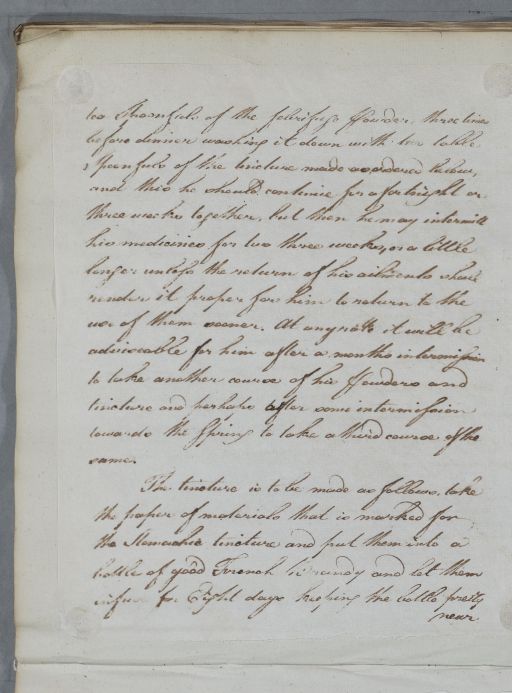 two Spoonfuls of the febrifuge Powder, three time
before dinner washing it down with two table
Spoonfuls of the tincture made as ordered below,
and this he should continue for a fortnight or
three weeks together, but then he may intermitt
his medicines for two three weeks, or a little
longer unless the return of his ailments shall
render it proper for him to return to the
use of them sooner. At any rate it will be
adviseable for him after a months intermission
to take another course of his Powders and
tincture and perhaps after some intermission
towards the Spring to take a third course of the
same.
The tincture is to be made as follows, take
the paper of materials that is marked for
the Stomachic tincture and put them into a
bottle of good French Brandy and let them
infuse for Eight days keeping the bottle pretty
near